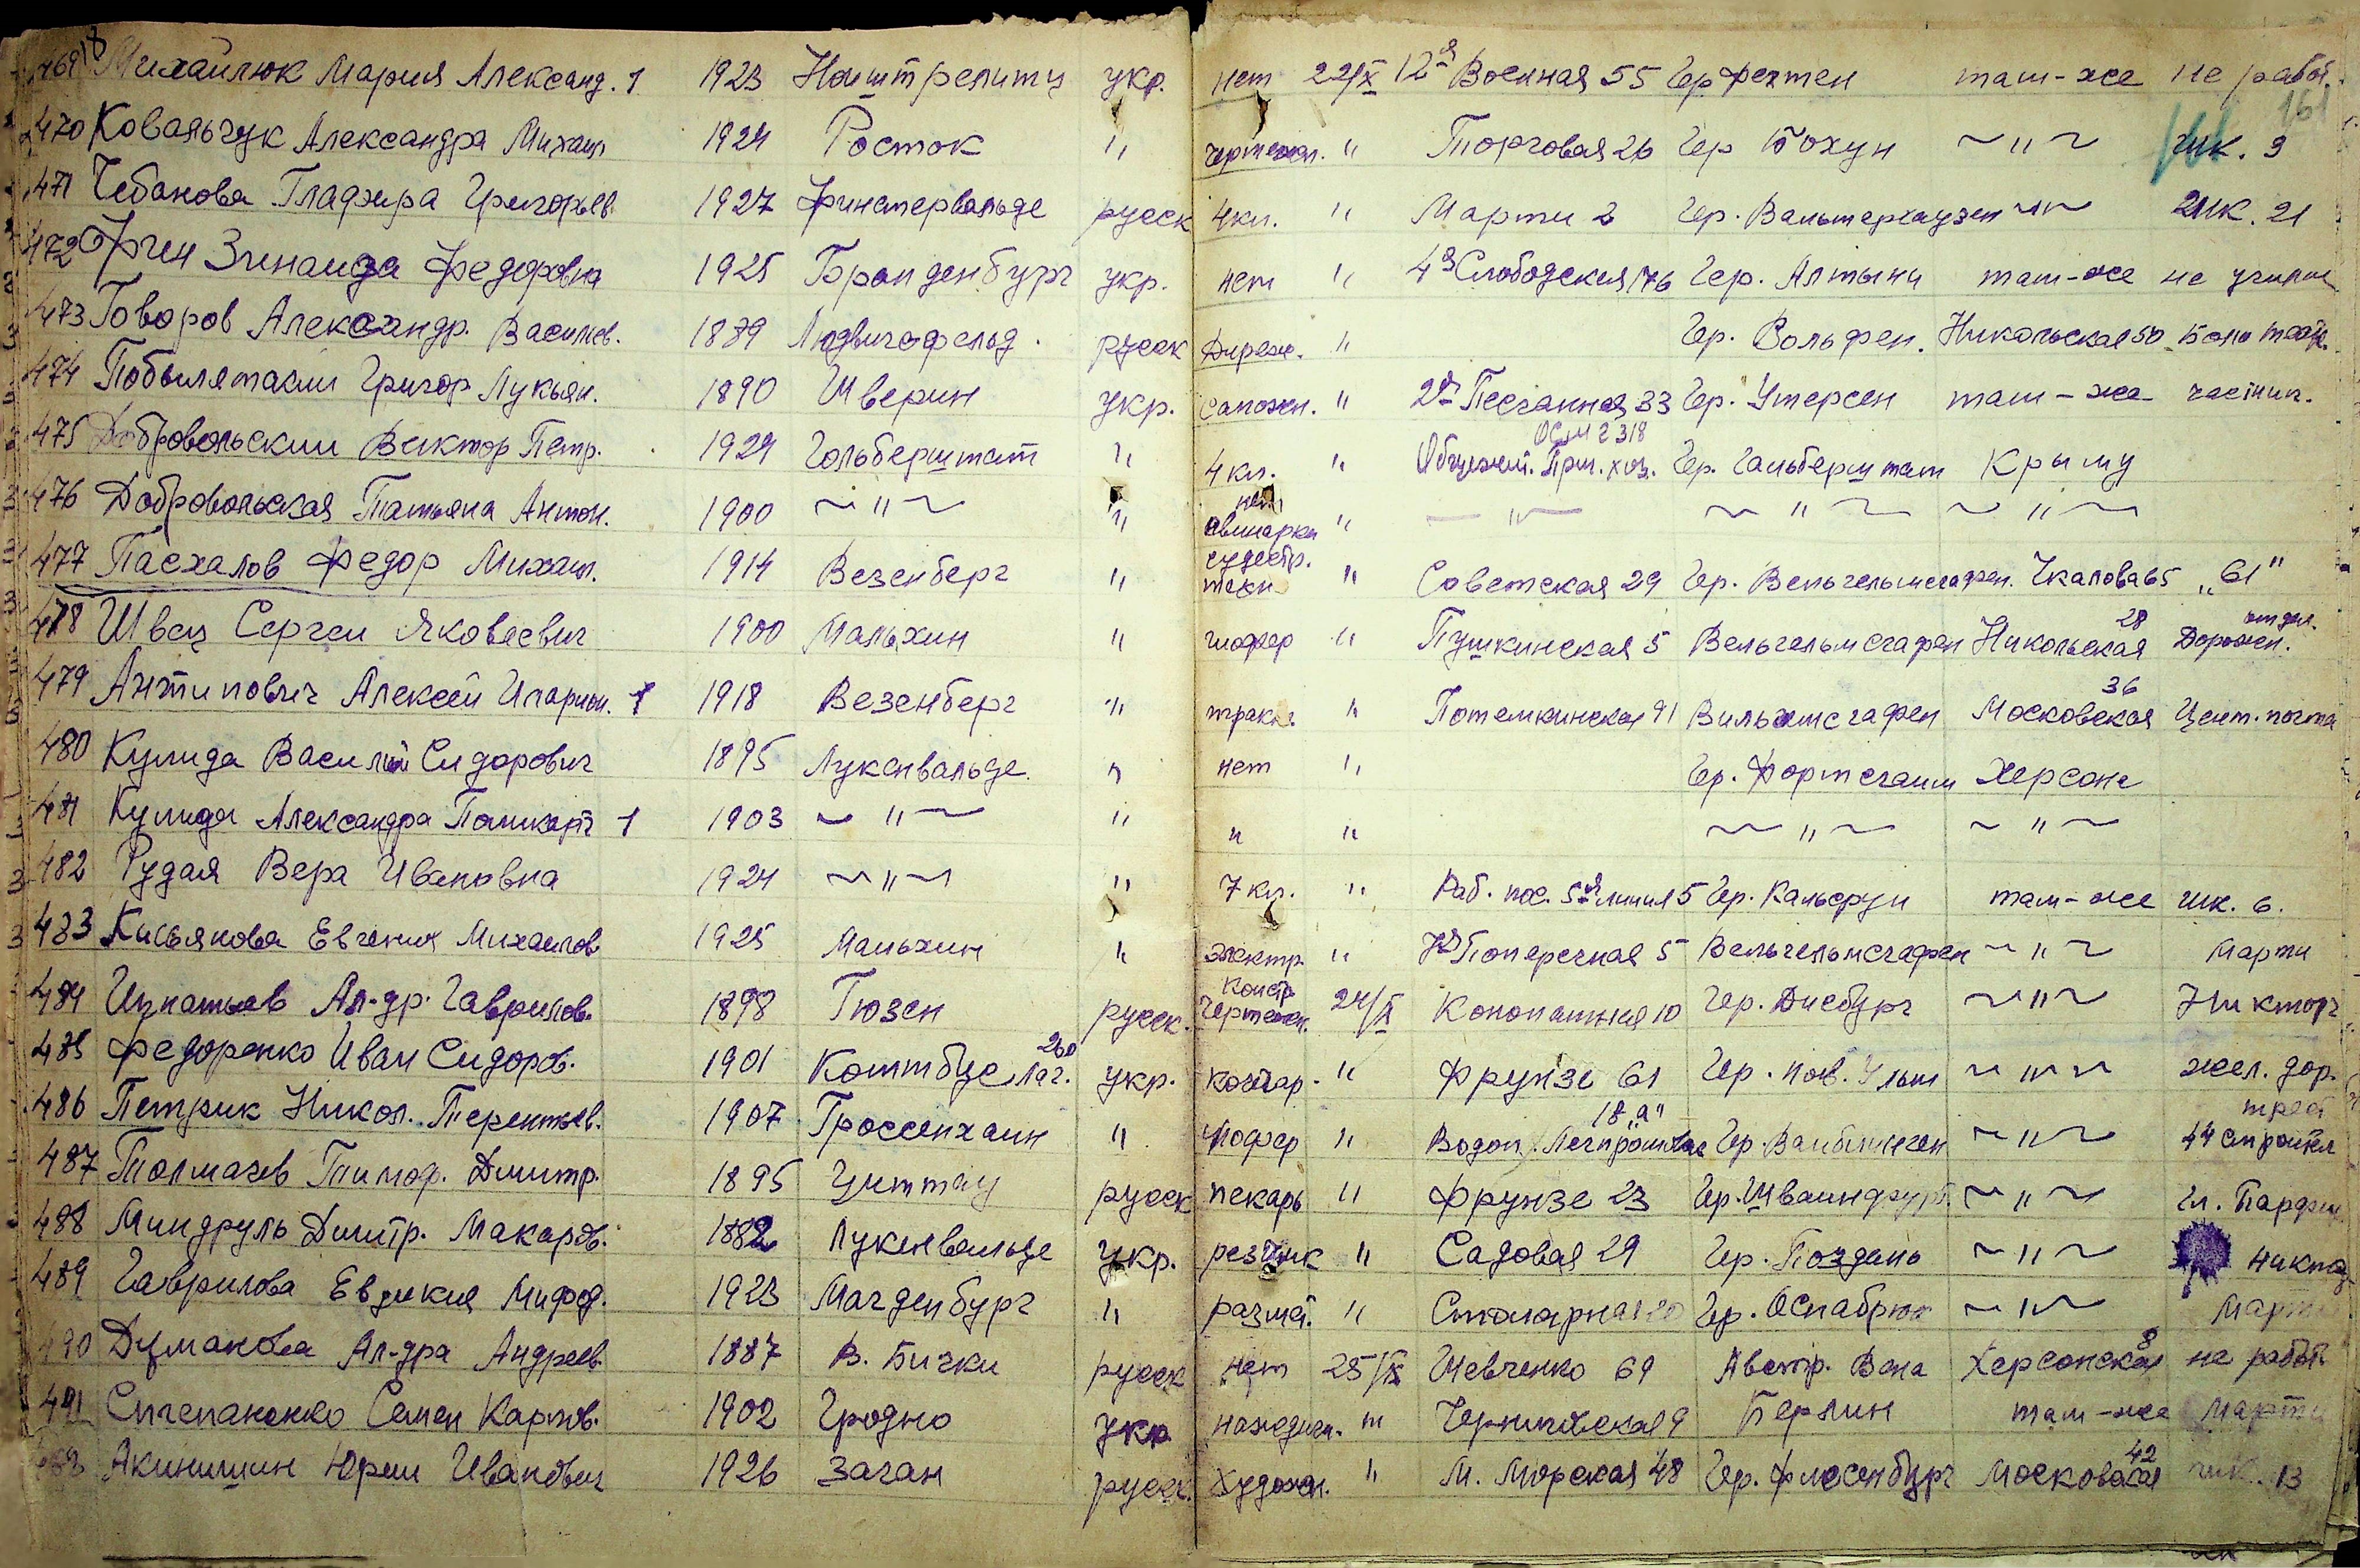 469 18 Михайлюк Мария Александ. 1 1923 Ноиштрелитц укр. нет 22/IX 12я Военная 55 Гер Фехтен там-же не работ.
161
470 Ковальчук Александра Михаил 1924 Росток " чертежн. " Торговая 26 Гер Бохун ~"~ шк. 9
471 Чебанова Глафира Григорьев. 1927 Финстервальде русск 4кл. " Марти 2 Гер. Вальтерхаузен ~"~ шк. 21
472 Зинаида Федоровна 1925 Бранденбург укр. нет " 4я Слободская 76 Гер. Алтыни там-же не
473 Говоров Александр. Васильев. 1889 Людвигсфельд. русск Дириж. " Гер. Вольфен. Никольская 50
474 Побылятакий Григор Лукьян. 1890 Шверин укр. сапожн. " 2я Песчанная 33 Гер. Утерсен там-же частник.
475 Добровольский Виктор Петр. 1924 Гольберштат " 4кл. " Общежит. Приг. хоз. Гер. Гальберштат Крыму
476 Добровольская Татьяна Антон. 1900 ~"~ " нет свинарка " —"— ~"~ ~"~
477 Пасхалов Федор Михаил. 1914 Везенберг " судостр. техн " Советская 29 Гер. Вельгельмсгафен. Чкалова 65 „61"
478 Швец Сергей Яковлевич 1900 Мальхин " шофер " Пушкинская 5 Вельгельмсгафен Никольская 28 Дорожн. отдел.
479 Антипович Алексей Иларион. 1 1918 Везенберг " тракт. " Потемкинская 91 Вильхемсгафен Московская 36 Цент. почта
480 Кулида Василий Сидорович 1895 Лукенвальде. " нет " Гер. Фортсгаим Херсонс
481 Кулида Александра 1 1903 ~"~ " " " ~"~ ~"~
482 Рудая Вера Ивановна 1924 ~"~ " 7 кл. " Раб. пос. 5я линия 5 Гер. Кальсрун там-же шк. 6.
483 Касьянова Евгения Михаилов. 1925 Мальхин " электр. " Поперечная 5 Вельгельмсгафен ~"~ Марти
484 Игнатьев Ал-др. Гаврилов. 1898 Гюзен русск. констр. Чертежн. 24/IX Колопатная 10 Гер. Дисбург ~"~ Никторг
485 Федоренко Иван Сидоров. 1901 Коттбус лаг. 260 укр. кочегар. " Фрунзе 61 Гер. Нов. Ульм ~"~ жел. дор.
486 Петрик Никол. Терентьев. 1907 Гроссенхаин " Шофер " Водоп. 18 „а" Гер. Ваиблинген ~"~ трест 44 строител
487 Толмачев Тимоф. Дмитр. 1895 Циттау русск пекарь " Фрунзе 23 Гер. Шваинфурт. ~"~
488 Миндруль Дмитр. Макаров. 1882 Лукенвальде укр. резчик " Садовая 29 Гер. Поздань ~"~
489 Гаврилова Евдокия Мифод. 1923 Магденбург " размет. " Столярная 20 Гер. Оснабрюк ~"~ Марти
490 Думанова Ал-дра Андреев. 1887 В. Бички русск нет 25/IX Шевченко 69 Австр. Вена Херсонская 8 не работ
491 Степаненко Семен Карпов. 1902 Гродно укр " Черниговская 9 Берлин там-же Марти
492 Акинишин Юрии Иванович 1926 Заган русск. художн. " М. Морская 48 Гер. Флосенбург Московская 42 шк. 13